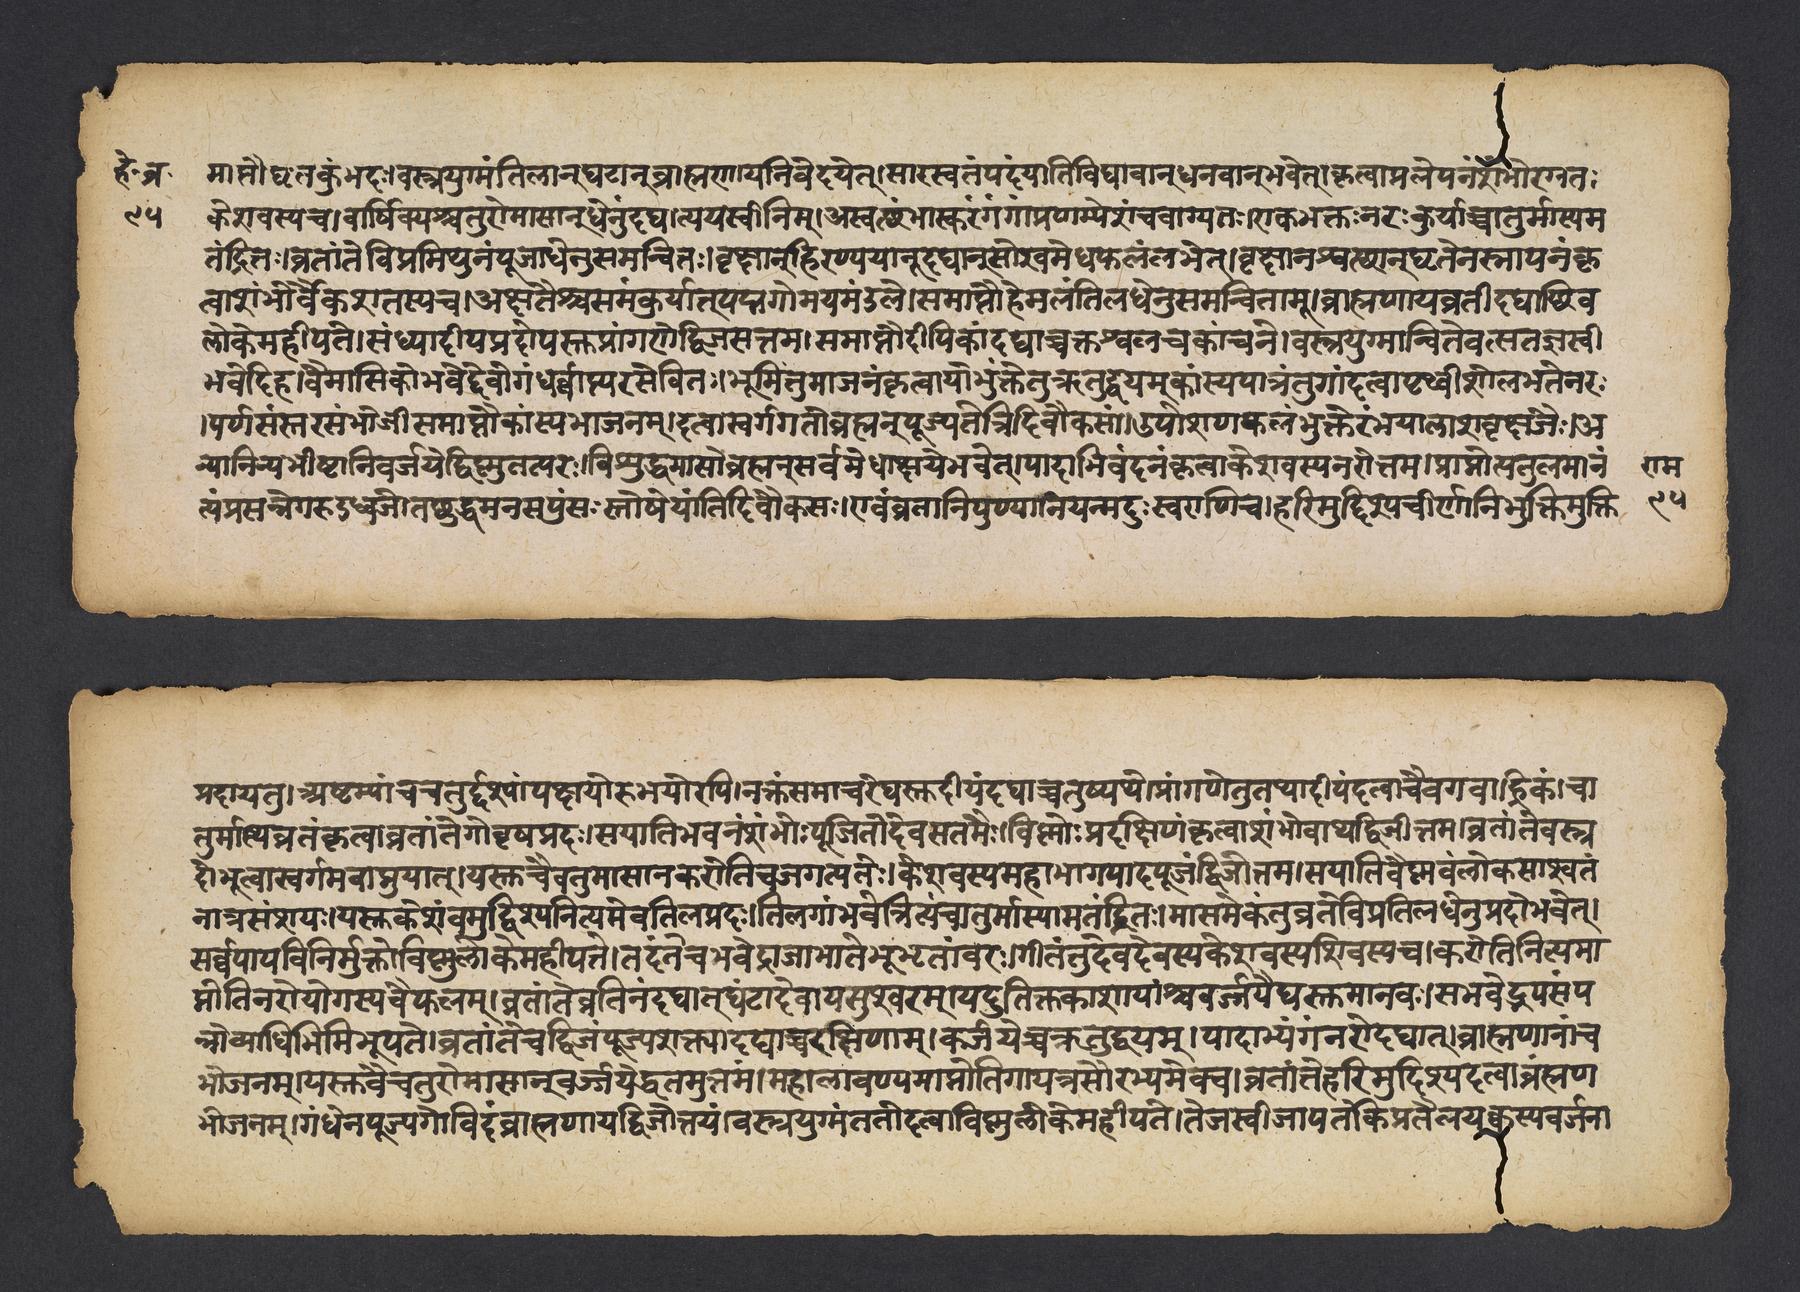 हे॰ व्र॰
९५
मासौघृतकुंभदः।वस्त्रयुग्मंतिलान्घटान्ब्राह्मणायनिवेदयेत्।सारस्वतंपदंयातिविद्यावान्धनवान्भवेत्।कृत्वाप्रलेपनंशंभोरग्रतः
केशवस्यच।वार्षिक्यश्चतुरोमासान्धेनुंदद्यात्पयस्वीनिम्।अस्वत्थंभास्करंगंगांप्रणम्येशंचवाग्यतः।एकभक्तःनरःकुर्याच्चातुर्मास्यम
तंद्रितः।व्रतांतेविप्रमिथुनंपूजाधेनुसमन्वितः।वृक्षान्हिरण्ययान्दद्यान्सोश्वमेधफलंलभेत्।वृक्षानश्वत्थान्घृतेनस्नापनंकृ
त्वाशंभोर्वैकेशवस्यच।अक्षतैश्चसमंकुर्यात्पद्मगोमयमंडले।समाप्तौहेमलंतिलधेनुसमन्विताम्।ब्राह्मणायव्रतीदद्याछिव
लोकेमहीपते।संध्यादीपप्रदोपस्तप्रांगणेद्विजसत्तम।समाप्तौदीपिकांदद्याच्चक्तश्वलचकांचने।वस्त्रयुग्मान्वितेवत्सतजस्वी
भवेदिह।वैमासिकोभवेद्देवोगंधर्वाप्सरसेवितः।भूमितुमाजनंकृत्वायोभुंक्तेतुऋतुद्वयमुकांस्यपात्रंतुगांदत्वापृथ्वीशोलभतेनरः
।पर्णसंस्तरसंभोजीसमाप्तौकांस्यभाजनम्।दत्वास्वर्गगतीब्रह्मन्पूज्यतेत्रिदिवौकसां।उपोशणफलभुक्तेरंभयालाशवृक्षजैः।अ
न्यानिन्यभीष्टानिवर्जयेद्विष्णुतत्परः।विशुद्धमासोब्रह्मन्सर्वमेधाक्षयेभवेत्।पादाभिवंदनंकृत्वाकेशवस्यनरोत्तम।प्राप्नोत्यतुलमानं
त्वंप्रसन्नेगरुडध्वजे।तछुद्धमनसपुंसःस्तोषेयांतिदिवौकसः।एवंव्रतानिपुण्यानियन्मदुःस्वराणिच।हरिमुद्दिश्यचीर्णानिभुक्तिमुक्ति
राम
९५
प्रदायतु।अष्टम्यांचचतुर्दश्यांपक्षयोरुभयोरपि।नक्तंसमाचरेद्यस्तदीपंदद्याच्चतुष्पथे।प्रांगणेतुतथादीपंदत्वाचैवगवाह्निकं।चा
तुर्मास्यव्रतंकृत्वाव्रतांतेगोवृषप्रदः।सयातिभवनंशंभोःपूजितोदेवसतमैः।विष्णोःप्रदक्षिणंकृत्वाशंभोवाथद्विजोत्तम।व्रतांतेवस्त्र
दोभुत्वास्वर्गमवाप्नुयात्।यस्तचैवतुमासानकरोतिचजगत्पतेः।केशवस्यमहाभागपादपूजंद्विजोत्तम।सयातिवैष्णवंलोकसाश्वतं
नात्रसंशयः।यस्तकेशंवमुद्दिश्यनित्यमेवतिलप्रदः।तिलगांभवेन्नित्यंचातुर्मास्यामतंद्रितः।मासमेकंतुव्रतेविप्रतिलधेनुप्रदोभवेत्।
सर्वपापविनिर्मुक्तोविष्णुलोकेमहीपते।तदंतेचभवेद्राजाभातेभूभृतांवरः।गीतंतुदेवदेवस्यकेशवस्यशिवस्यच।करोतिनित्यमा
प्नोतिनरोयोगस्यवैफलम्।व्रतांतेव्रतिनंदद्यात्घंटादेवायसुश्वरम्।यदुतिक्तकाशायांश्चवर्ज्जयेद्यस्तमानवः।सभवेद्रुपसंप
न्नोव्याधिभिमिभूपते।व्रतांतेचद्विजंपूज्यशक्त्यादद्याच्चरक्षिणाम्।कर्जयेच्चऋतुद्वयम्।पादाभ्यंगंनरोदद्यात्।ब्राह्मणानांच
भोजनम्।यस्तवैचतुरोमासान्वर्ज्जयेद्घृतमुत्तमं।महालावण्यमाप्नोतिगायत्रसौरभ्यमेवच।व्रतांतेहरिमुदिश्यदत्वाब्रंह्मण
भोजनम्।गंधेनपूज्यगोविदंब्राह्मणायद्विजोत्तयं।वस्त्रयुग्मंततोदत्वाविष्णुलोकेमहीपते।तेजस्वीजापतेकिप्रतैलयक्रस्यवर्जना